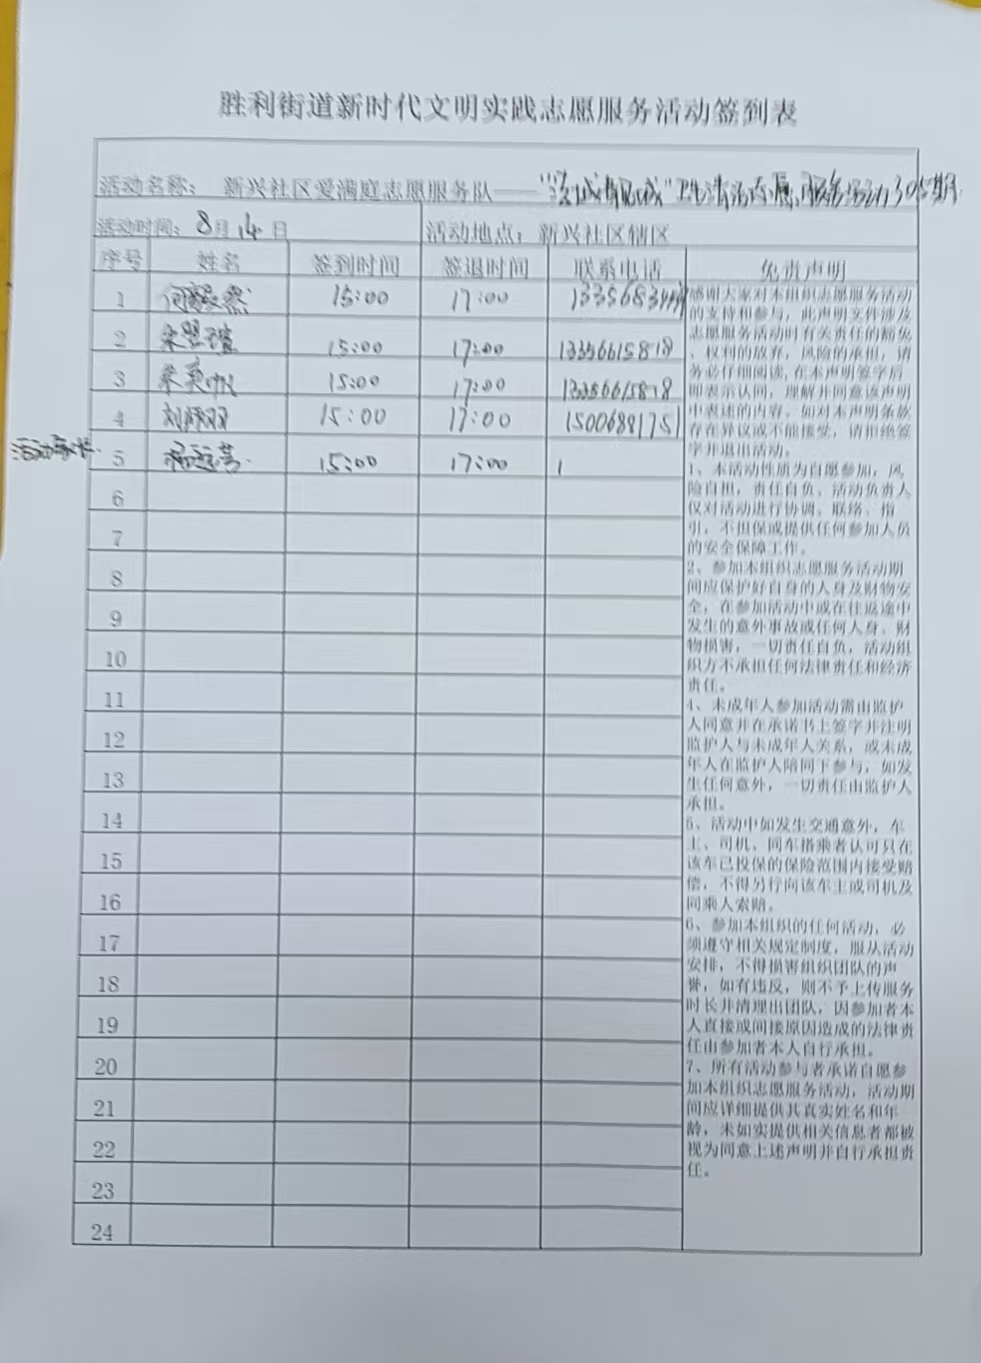 胜利街道新时代文明实践志愿服务活动签到表
活动名称： 新兴社区爱满庭志愿服务队——
活动时间：8月14日 活动地点：新兴社区辖区
序号 姓名 签到时间 签退时间 联系电话 免责声明
1 15:00 17:00
2 15:00 17:00 13356615818
3 15:00 17:00 13356615818
4 15:00 17:00 15006891751
5 15:00 17:00
6
7
8
9
10
11
12
13
14
15
16
17
18
19
20
21
22
23
24
感谢大家对本组织志愿服务活动
的支持和参与，此声明文件涉及
志愿服务活动时有关责任的豁免
、权利的放弃，风险的承担，请
务必仔细阅读，在本声明签字后
即表示认同，理解并同意该声明
中表述的内容。如对本声明条款
存在异议或不能接受，请拒绝签
字并退出活动。
1、本活动性质为自愿参加，风
险自担，责任自负。活动负责人
仅对活动进行协调、联络、指
引，不担保或提供任何参加人员
的安全保障工作。
2、参加本组织志愿服务活动期
间应保护好自身的人身及财物安
全，在参加活动中或在往返途中
发生的意外事故或任何人身、财
物损害，一切责任自负，活动组
织方不承担任何法律责任和经济
责任。
4、未成年人参加活动需由监护
人同意并在承诺书上签字并注明
监护人与未成年人关系，或未成
年人在监护人陪同下参与，如发
生任何意外，一切责任由监护人
承担。
5、活动中如发生交通意外，车
主、司机、同车搭乘者认可只在
该车已投保的保险范围内接受赔
偿，不得另行向该车主或司机及
同乘人索赔。
6、参加本组织的任何活动，必
须遵守相关规定制度，服从活动
安排，不得损害组织团队的声
誉，如有违反，则不予上传服务
时长并清理出团队，因参加者本
人直接或间接原因造成的法律责
任由参加者本人自行承担。
7、所有活动参与者承诺自愿参
加本组织志愿服务活动，活动期
间应详细提供其真实姓名和年
龄，未如实提供相关信息者都被
视为同意上述声明并自行承担责
任。